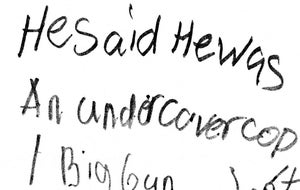 He Said He was
An undercover cop
1 Big Gun